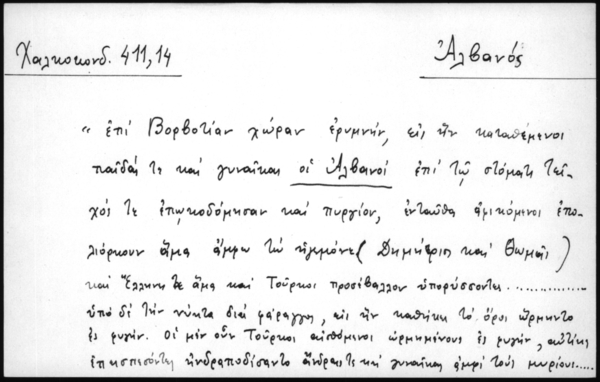 Χαλκοκονδ. 411,14
Ἀλβανός
" ἐπὶ Βορβοτίαν χώραν ἐρυμνήν, εἰς ἣν καταθέμενοι
παῖδάς τε καὶ γυναῖκας οἱ Ἀλβανοὶ ἐπὶ τῷ στόματι τεῖ-
χός τε ἐπῳκοδόμησαν καὶ πυργίον, ἐνταῦθα ἀφικόμενοι ἐπο-
λιόρκουν ἅμα ἄμφω τὼ ἡγεμόνε (Δημήτριος καὶ Θωμᾶς)
καὶ Ἕλληνές τε ἅμα καὶ Τοῦρκοι προσέβαλλον ὑπορύσσοντες..........
ὑπὸ δὲ τὴν νύκτα διὰ φάραγγος, εἰς ἣν καθήκει τὸ ὄρος ὥρμηντο
ἐς φυγήν. Οἱ μὲν οὖν Τοῦρκοι αἰσθόμενοι ὡρμημένους ἐς φυγήν, αὐτίκα
ἐπεισπεσόντες ἠνδραποδίσαντο ἄνδρας τε καὶ γυναῖκας ἀμφὶ τοὺς μυρίους.....